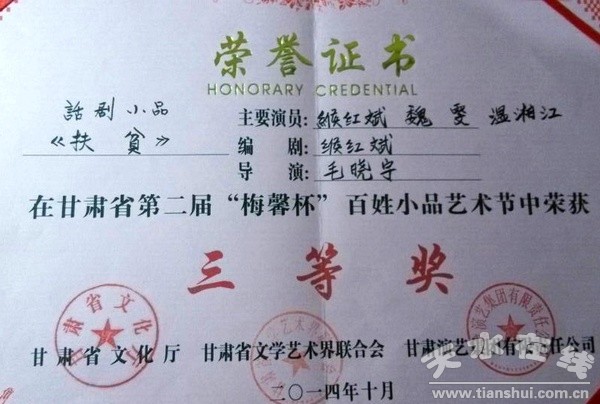 荣誉证书
HONORARY CREDENTIAL
話剧小品 主要演员: 缑红斌 魏雯 温湘江
《扶贫》 编剧: 缑红斌
导演: 毛晓宇
在甘肃省第二届“梅馨杯”百姓小品艺术节中荣获
三等奖
甘肃省文化厅 甘肃省文学艺术界联合会 甘肃演艺集团有限责任公司
二〇一四年十月
甘肃省文化厅
天水在线
www.tianshui.com.cn